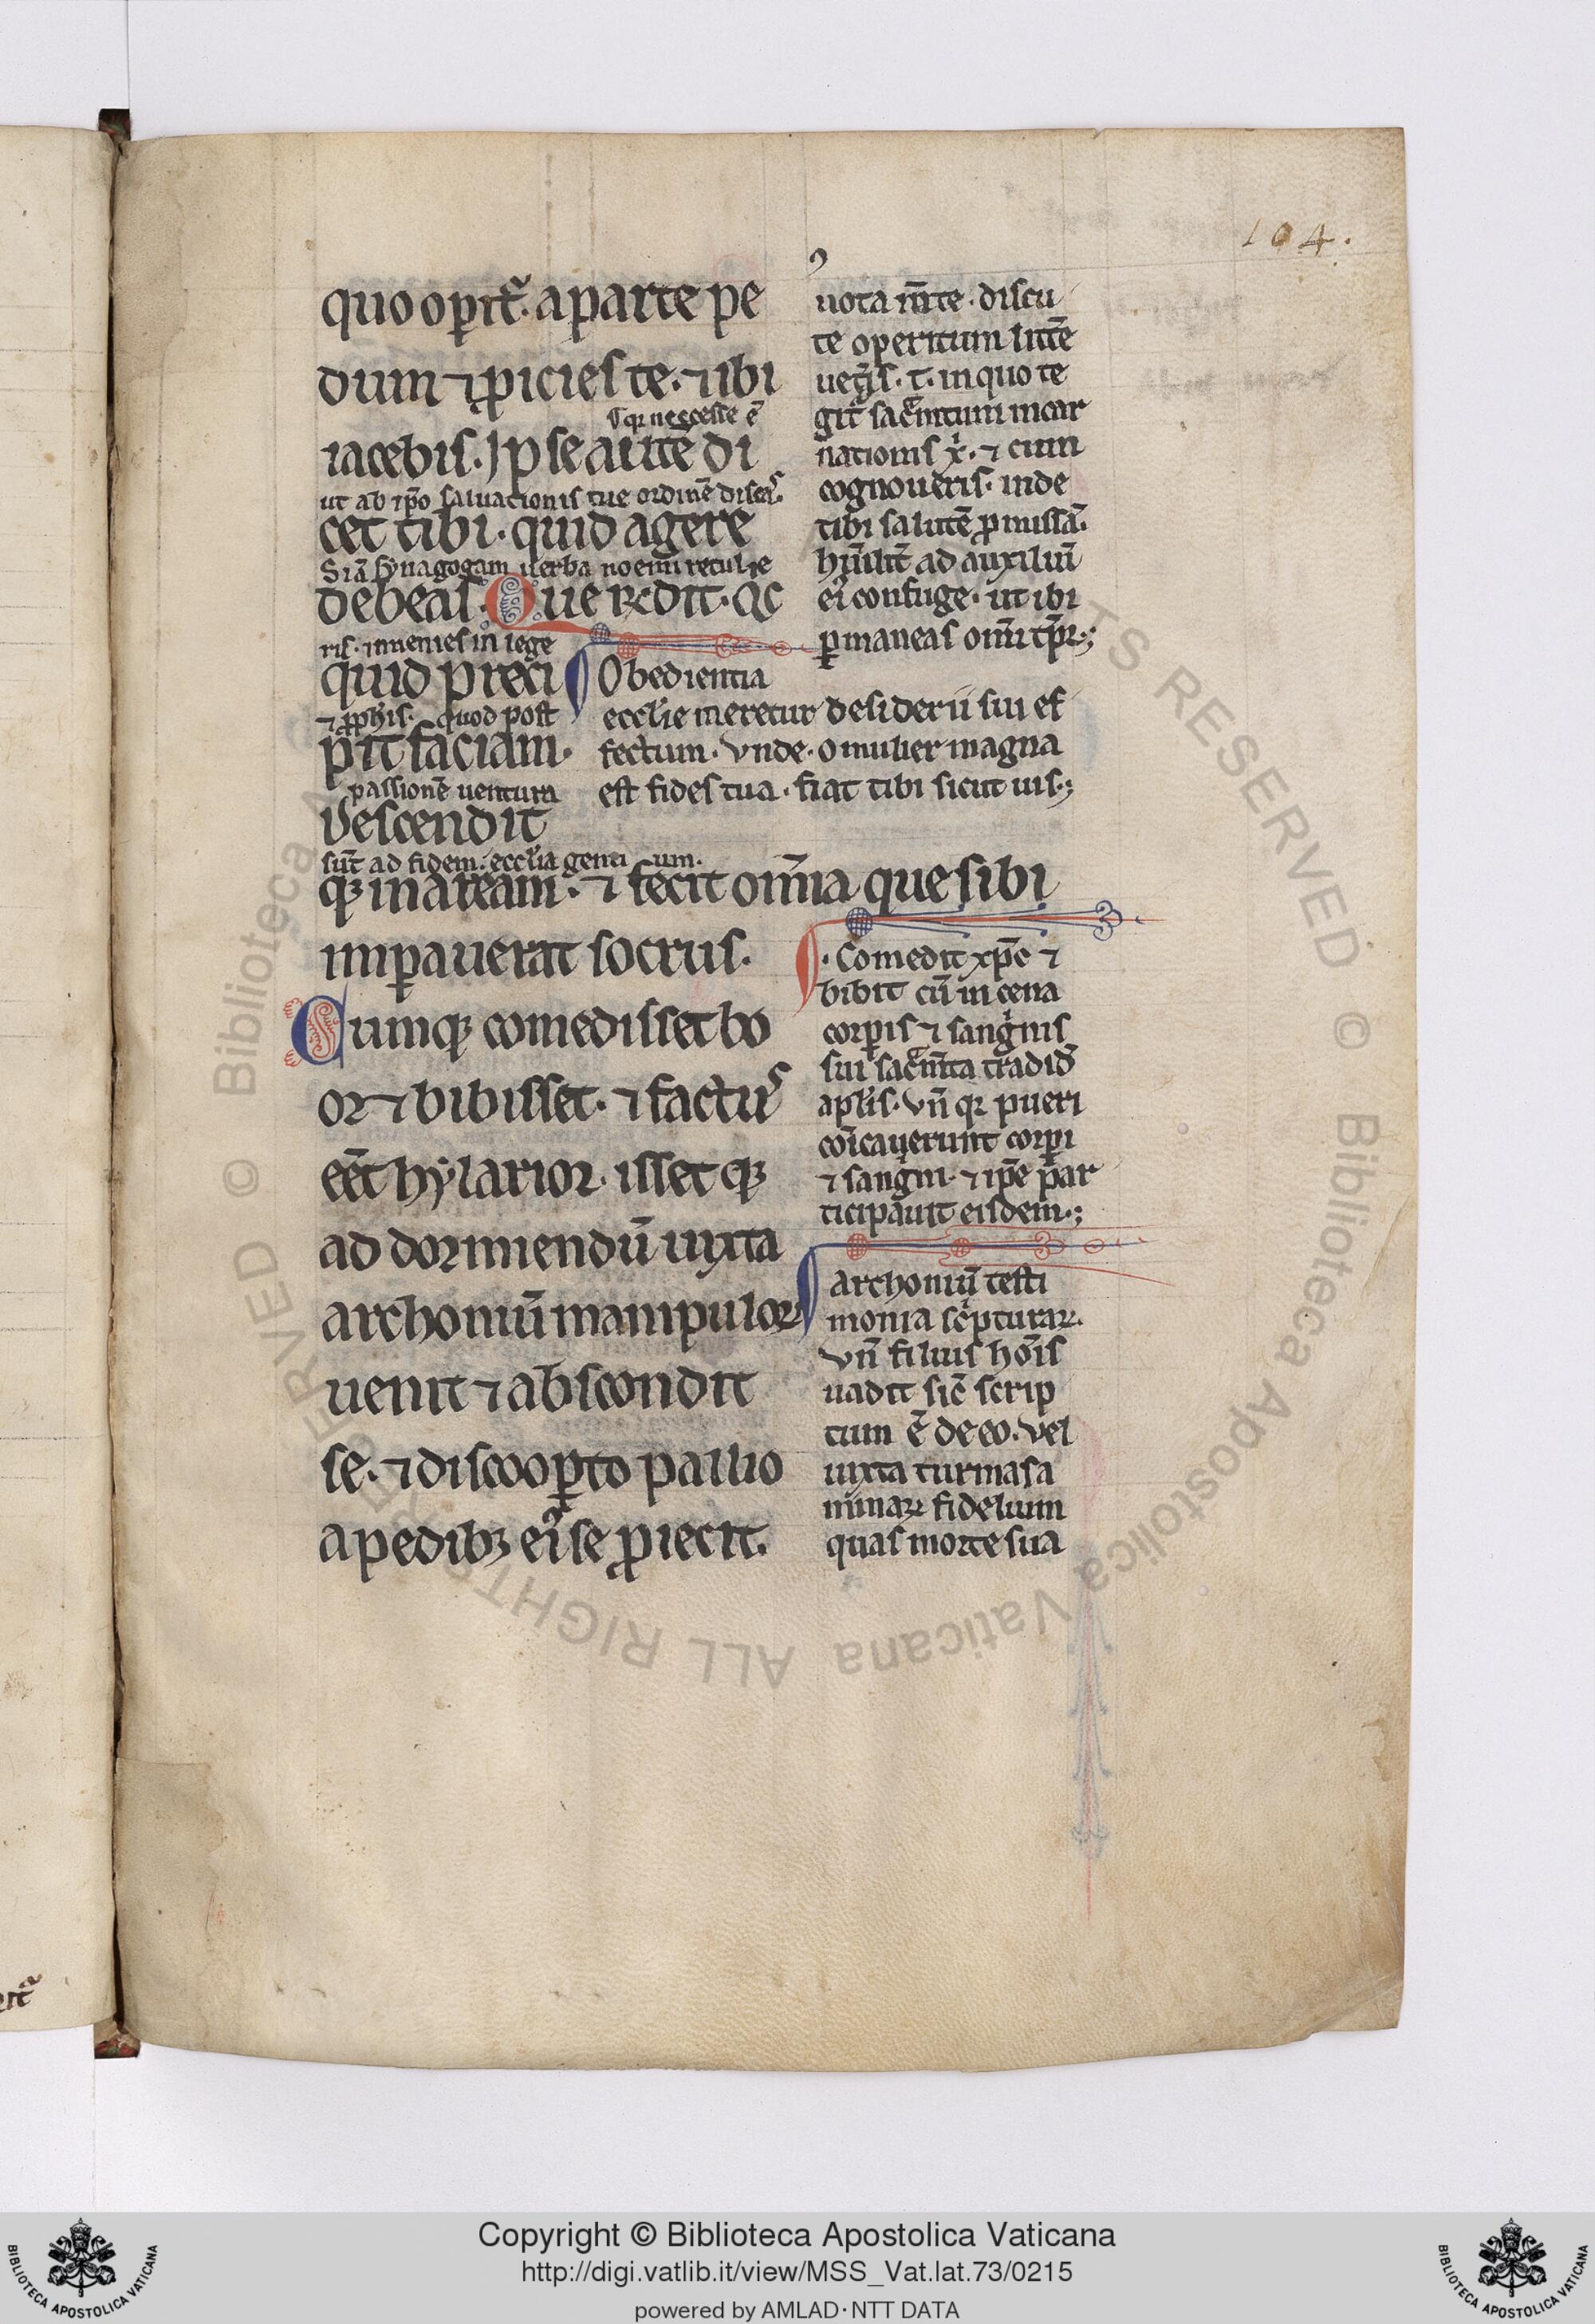 104.
quo op̱it᷑. a parte pe
dum ⁊ ꝓicies te. ⁊ ibi
s. qꝛ neccesse ē
iacebis. Ipse autē di
ut ab ip̄o saluationis tue ordinē discas.
cet tibi. quid agere
Si ā synagogam uerba noemi retulie
debeas. Que rn̄dit. Qc
ris. inuenies in lege
quid preci
⁊ ꝓph̄is. quod post
p̱it faciam.
passionē uentura
Descendit
sūt ad fidem. ecclīa gentium.
qꝫ in aream. ⁊ fecit om̄ia que sibi
imꝑauerat socrus.
Cumqꝫ comedisset bo
oz ⁊ bibisset. ⁊ factus
eēt hylarior. issetqꝫ
ad dormiendū iuxta
archoniū manipuloꝝ
uenit ⁊ abscondit
se. ⁊ discooꝑto pallio
a pedibꝫ ei᷒ se ꝓiecit.
uota m̄te. discu
te operitum littē
ueteris. t. in quo te
git᷑ sac̄mtum incar
nationis x̄. ⁊ cum
cognoueris. inde
tibi salutē ꝓmissā.
hūilit̄ ad auxiliū
ei᷒ confuge. ut ibi
ꝑmaneas om̄i tp̄r.;
Obedientia
eccl̄ie meretur desiderii sui ef
fectum. Vnde. o mulier magna
est fides tua. fiat tibi sicut uis.;
Comedit xp̄c ⁊
bibit cū in cena
corꝑis ⁊ sangnis
sui sac̄mta tradid̄
apl̄is. Vn̄ qꝛ pueri
cōicauerunt corꝑi
⁊ sangni. ⁊ ip̄e par
ticipauit eisdem.;
Archoniū testi
monia scⁱpturaꝝ.
Vn̄ filius hoīs
uadit sic̄ scrip
tum ē de eo. Vel
iuxta turmas a
nimaꝝ fidelium
quas morte sua
Copyright © Biblioteca Apostolica Vaticana
http://digi.vatlib.it/view/MSS_Vat.lat.73/0215
powered by AMLAD·NTT DATA
BIBLIOTECA APOSTOLICA VATICANA
BIBLIOTECA APOSTOLICA VATICANA